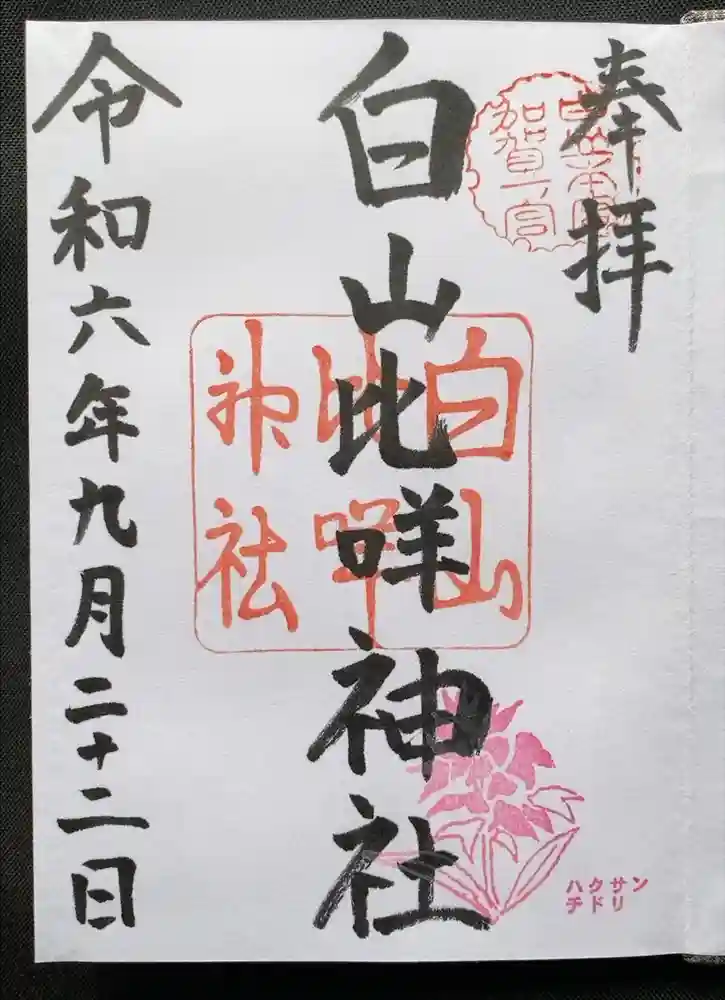 奉拝
加賀一宮
白山比咩神社
白山
比咩
神社
令和六年九月二十二日
ハクサン
チドリ